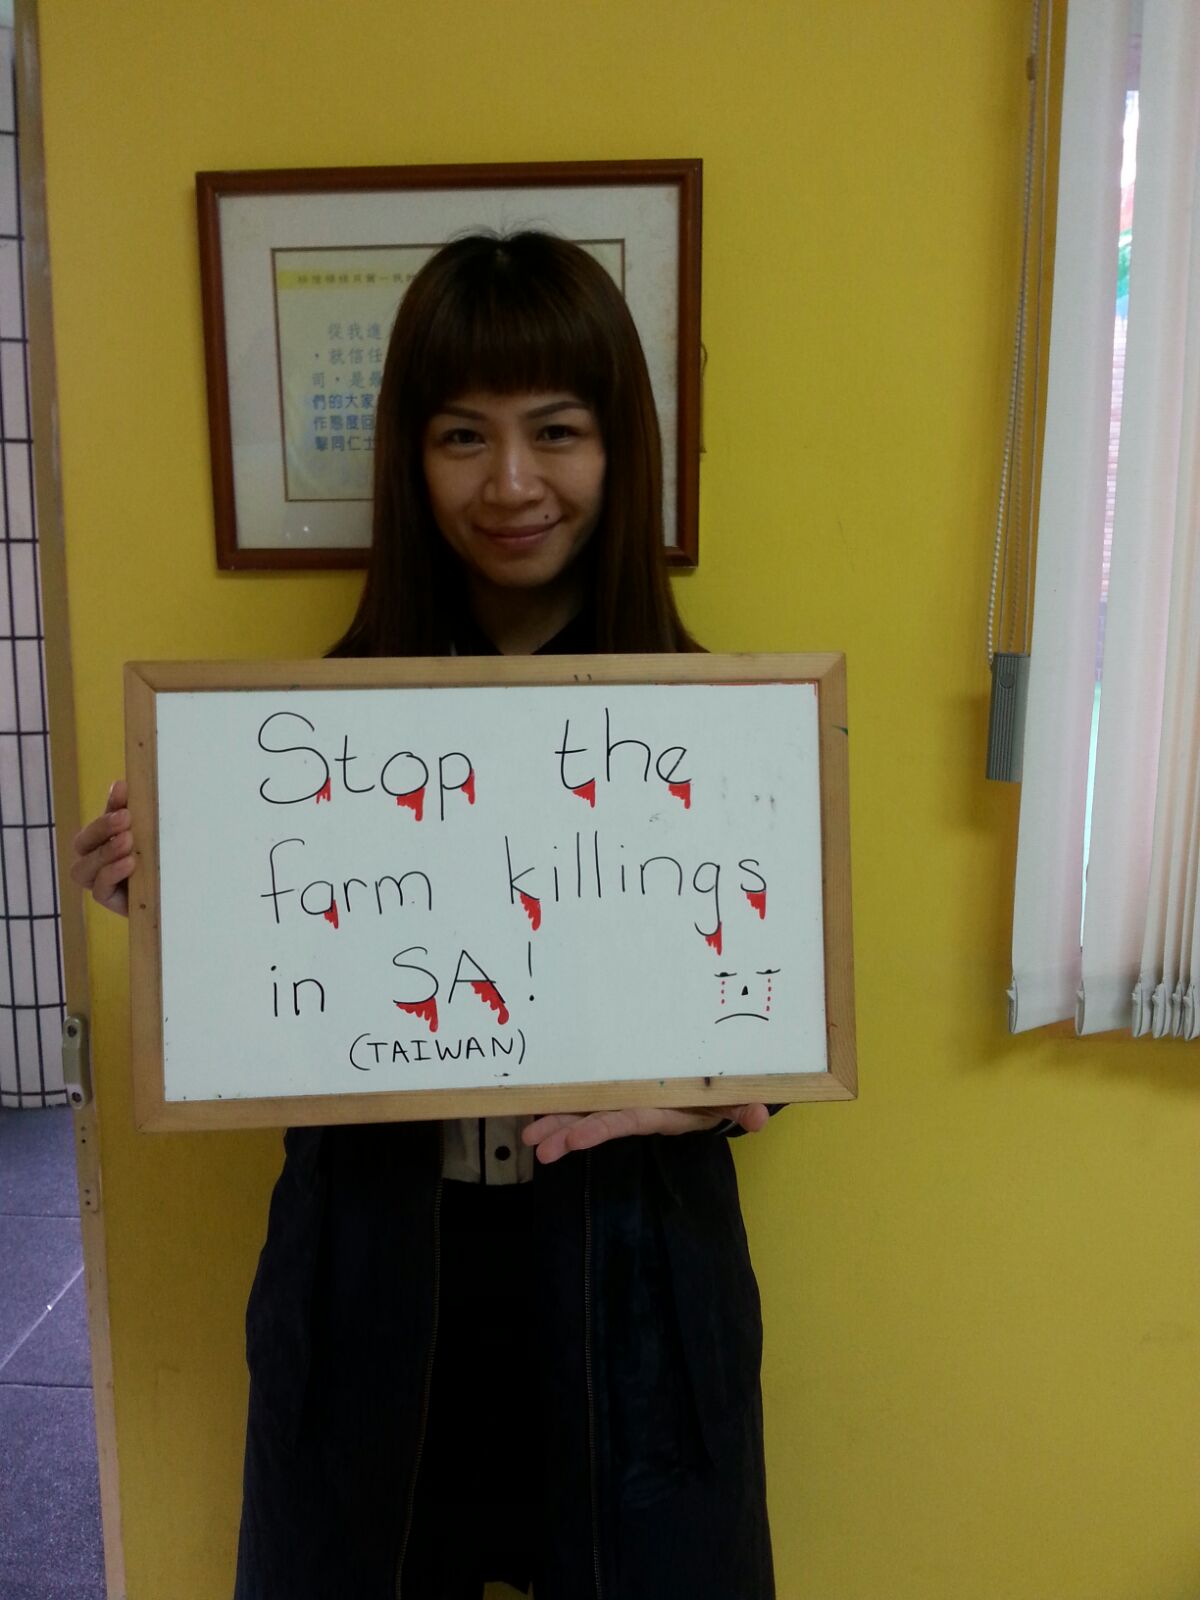 從我進
，就信任
司，是最
們的大家
作態度回
擊同仁士
Stop the
farm killings
in SA!
(TAIWAN)